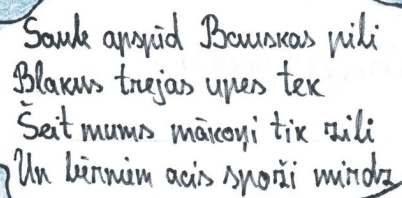 Saule apspīd Bauskas pili
Blakus trejas upes tek
Šeit mums mākoņi tik zili
Un bērniem acis spoži mirdz